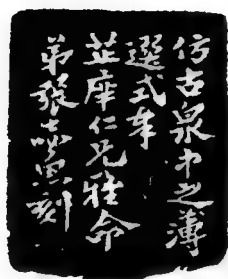 仿古泉中之薄
選式奉
芷庠仁兄雅命
弟張刻